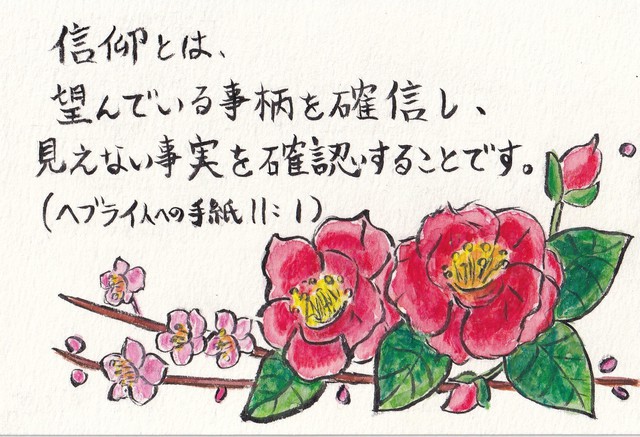 信仰とは、
望んでいる事柄を確信し、
見えない事実を確認することです。
(ヘブライ人への手紙11:1)